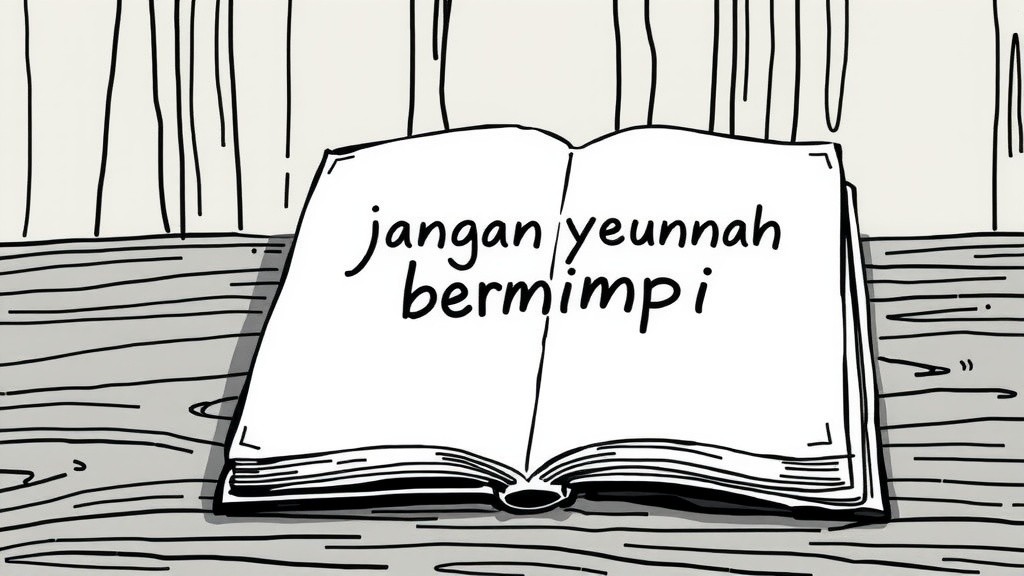 jangan yeunnah
bermimpi